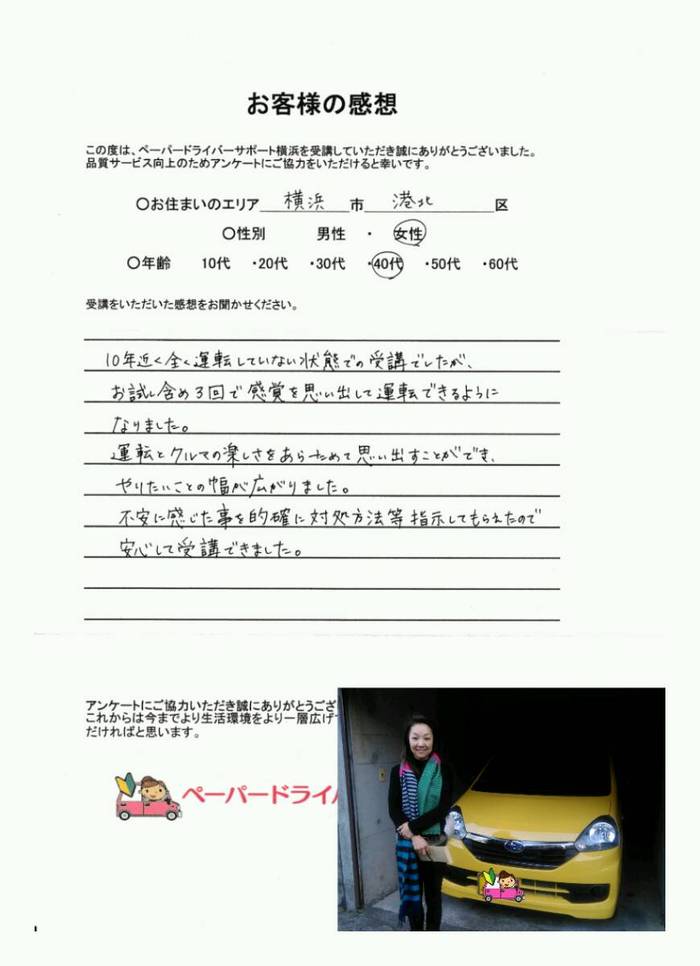 お客様の感想
この度は、ペーパードライバーサポート横浜を受講していただき誠にありがとうございました。
品質サービス向上のためアンケートにご協力をいただけると幸いです。
○お住まいのエリア 横浜 市 港北 区
○性別 男性 ・ 女性
○年齢 10代 ・20代 ・30代 ・40代 ・50代 ・60代
受講をいただいた感想をお聞かせください。
10年近く全く運転していない状態での受講でしたが、
お試し含め3回で感覚を思い出して運転できるように
なりました。
運転とクルマの楽しさをあらためて思い出すことができ、
やりたいことの幅が広がりました。
不安に感じた事を的確に対処方法等指示してもらえたので
安心して受講できました。
アンケートにご協力いただき誠にありがとうござ
これからは今までより生活環境をより一層広げ
だければと思います。
ペーパードライ